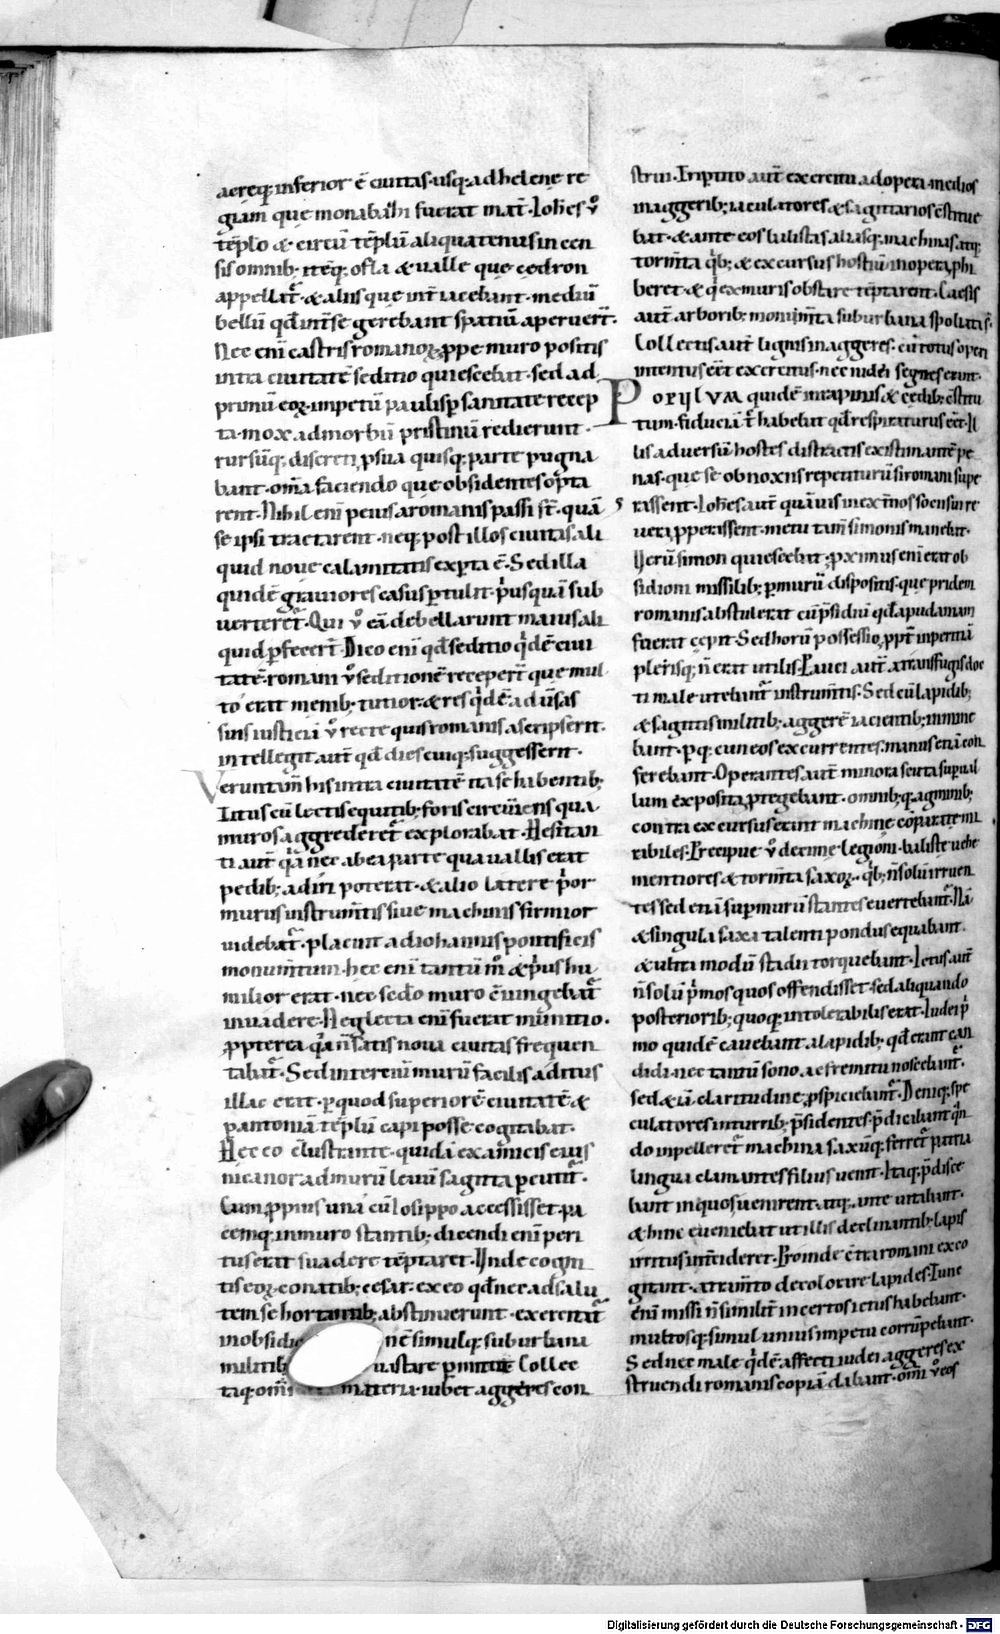 aereq; inferior ē ciuitas usq; ad helene re
giam que monabazhi fuerat mat̄. Ioh̄es ů
tēplo & circū tēplū aliquatenus incen
sis omnib; itēq; ofla & ualle que cedron
appellat̄ & aliis que int̄iacebant mediū
bellū qd̄ int̄ se gerebant spatiū aperuer̄t.
Nec eni castris romanoꝝ ꝓpe muro positis
intra ciuitatē seditio quiescebat. sed ad
primū eoꝝ impetū paulisꝑ sanitate recep
ta. mox ad morbū pristinū redierunt.
rursūq; discreti ꝓ sua quisq; parte pugna
bant. om̄a faciendo que obsidentes opta
rent. Nihil eni peius a romanis passi st̄. quā
se ipsi tractarent. neq; post illos ciuitas ali
quid noue calamitatis exꝑta ē. Sed illa
quidē grauiores casus ꝑtulit p̄usquā sub
uerteret̄. Qui ů eā debellarunt maius ali
quid ꝑfecer̄t. Dico eni qd̄ seditio q̄dē ciui
tatē. romani ů seditionē receper̄t que mul
to erat menib; tutior. & res q̄dē aduersas
suis iusticiā ů recte quis romanis ascripserit.
intellegit aut̄ qd̄ dies cuiq; suggesserit.
Veruntam̄ his intra ciuitatē ita se habentib;
Titus cū lectis equitib; foris circu̅iens qua
muros aggrederet̄ explorabat. Hesitan
ti aut̄ q̄a nec ab ea parte qua uallis erat
pedib; adiri poterat. & alio latere p̄or
murus instrum̄tis siue machinis firmior
uidebat̄. placuit ad iohannis pontificis
monum̄tum. hec eni tantū īn & p̄us hu
milior erat. nec sc̄do muro c̄iungebat̄
inuadere. Neglecta eni fuerat munitio.
ꝓpterea q̄a n̄ satis noua ciuitas frequen
tabat̄. Sed interim murū facilis aditus
illac erat. ꝑ quod superiorē ciuitatē &
ꝑ antoniā tēplū capi posse cogitabat.
Hec eo c̄lustrante. quidā ex amicis eius
nicanor ad murū leuiu sagitta ꝑcutit̄.
Cum ꝓpius unā cū Iosippo accessisset. pa
cemq; in muro stantib; dicendi eni peri
tus erat suadere tēptaret. Vnde cogni
tis eoꝝ conatib; cesar. ex eo qd̄ nec ad salu
tem se hortantib; abstinuerunt. excitat̄
in obsidio nē simulq; suburbana
militib; uastare ꝑmittit Collec
taq; om̄i materia iubet aggeres con
strui. Tripertito aut̄ exercitu ad opera. medios
in aggerib; iaculatores & sagittarios c̄stitue
bat. & ante eos balistas aliasq; machinas atq;
torm̄ta q̄b; & excursus hostiū in opera ꝓhi
beret. & q̄ ex muris obstare tēptarent. Caesis
aut̄ arborib; monim̄ta suburbana spoliatas.
Collectis aut̄ lignis in aggeres. cū totus operi
intentus eēt exercitus. nec iudei segnes erant.
Popvlvm quidē in rapinis & cedib; c̄stitu
tum. fiducia t̄c habebat qd̄ respiraturus eēt. Il
lis aduersū hostes distractis existimante pe
nas. que se ab noxiis repetiturū si romani supe
rassent. Ioh̄es aut̄ quāuis in ext̄nos socii sui re
uera ꝓperassent. metu tam̄ simonis manebat.
Nerū simon quiescebat. ꝓximus eni erat ob
sidioni missilib; ꝑ murū dispositis. que pridem
romanis abstulerat. cū p̄sidiū qd̄ apud antoniam
fuerat cepit. Sed horū possessio ꝓpt̄ inperitiā
plerisq; n̄ erat utilis. Pauci aut̄ a transfugis doc
ti male utebant̄ instrum̄tis. Sed cū lapidib;
& sagittis militib; aggerē iacientib; immine
bant. ꝑq; cuneos excurrentes. manus etiā con
ferebant. Operantes aut̄ minora scuta suꝑ ual
lum exposita ꝓtegebant. omnib; q; agminib;
contra excursus erant machine cōparate mi
rabiles. Precipue ů decime legioni baliste uehe
mentiores & torm̄ta saxoꝝ. q̄b; n̄ solū irruen
tes sed etiā suꝑ murū stantes euertebant̄. Nā
& singula saxa talenti pondus equabant.
& ultra modū stadii torquebant̄. Ictus aut̄
n̄ solū p̄mos quos offendisset. sed aliquando
posteriorib; quoq; intolerabilis erat. Iudei p̄
mo quidē cauebant a lapidib; qd̄ erant can
didi. nec tantū sono ac fremitu noscebant̄.
sed & iā claritudine ꝓspiciebant̄. Deniq; spe
culatores in turrib; p̄sidentes. p̄dicabant q̄n
do inpelleret̄ machina saxūq; ferret̄ patria
lingua clamantes filius uenit. Itaq; p̄disce
bant in quos uenirent. atq; ante uitabant.
& hinc eueniebat ut illis declinantib; lapis
irritus int̄cideret. Proinde c̄tra romani ex co
gitant. atram̄to decolorare lapides. Tunc
enī missi n̄ similit̄ in certos ictus habebant.
multosq; simul unius impetu corrūpebant.
Sed nec male q̄dē affecti iudei aggeres ex
struendi romanis copiā dabant. om̄i ů eos
Digitalisierung gefördert durch die Deutsche Forschungsgemeinschaft - DFG